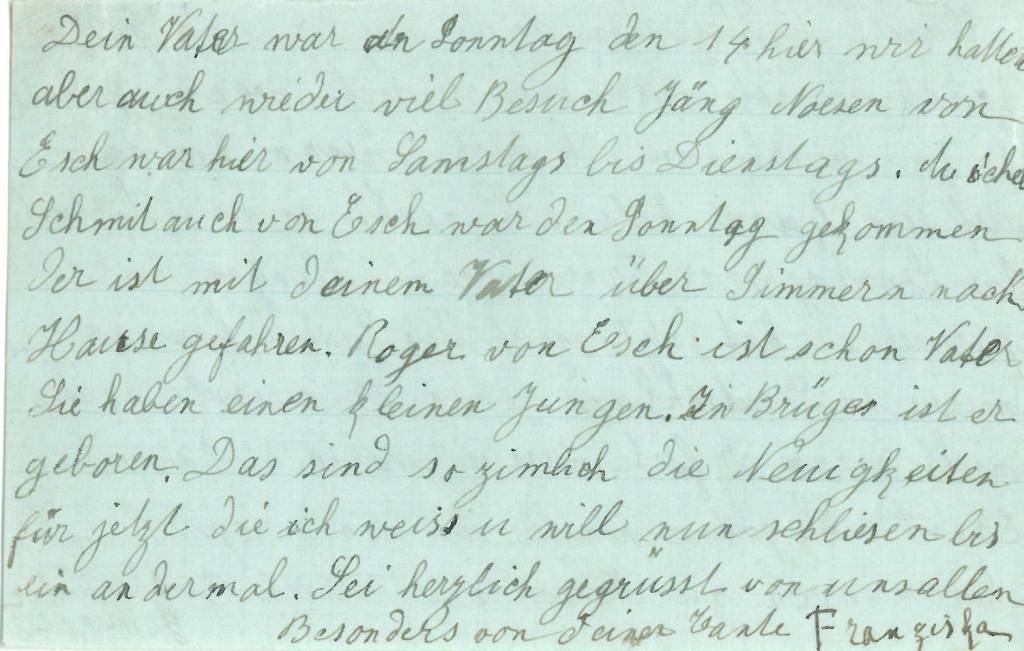 Dein Vater war den Sonntag den 14 hier wir hatten
aber auch wieder viel Besuch Jäng Noesen von
Esch war hier von Samstags bis Dienstags.
Schmit auch von Esch war den Sonntag gekommen
der ist mit deinem Vater über Simmern nach
Hause gefahren. Roger von Esch ist schon Vater
Sie haben einen kleinen Jungen. In Brüges ist er
geboren. Das sind so zimlich die Neuigkeiten
für jetzt die ich weiss u will nun schliesen bis
ein andermal. Sei herzlich gegrüsst von uns allen
Besonders von deiner Tante Franziska